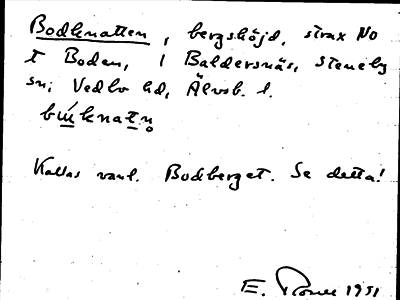 Bodknatten, bergshöjd, strax NO
t Boden, i Baldersnäs, Steneby
sn; Vedbo hd, Älvsb. l.
Kallas vanl. Bodberget. Se detta!
E. 1951